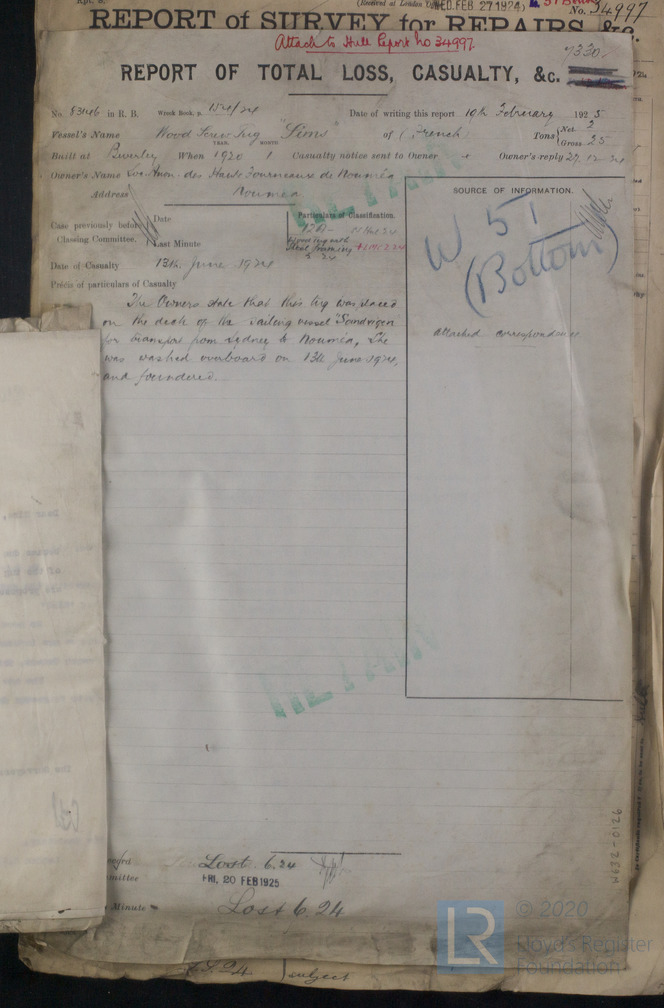 WED. FEB. 27 1924
No. 34997
REPORT of SURVEY for REPAIRS, &c.
Attach to Hull Report No 34997.
7330
REPORT OF TOTAL LOSS, CASUALTY, &c.
No. 83446 in R. B. Wreck Book, p. Date of writing this report 19th February 1925
Vessel's Name Wood Screw Tug "Sims" of (French) Tons Net 2
Gross 25
YEAR. MONTH
Built at Beverley When 1920 1 Casualty notice sent to Owner Owner's reply 27.12.24
Owner's Name Soc. Anon. des Hauts Fourneaux de Nouméa
Address Nouméa
RETAIN
SOURCE OF INFORMATION.
Case previously before Classing Committee.
Date
Last Minute
Particulars of Classification.
W 51
(Bottom)
Date of Casualty 13th June 1924
Précis of particulars of Casualty
The Owners state that this tug was placed
on the deck of the sailing vessel
for transport from Sydney to Nouméa, She
was washed overboard on 13th June 1924,
and foundered.
attached correspondence
RETAIN
Lost 6.24
FRI, 20 FEB 1925
Minute Lost 6.24
W632-0126
subject
LR
© 2020
Lloyd's Register
Foundation